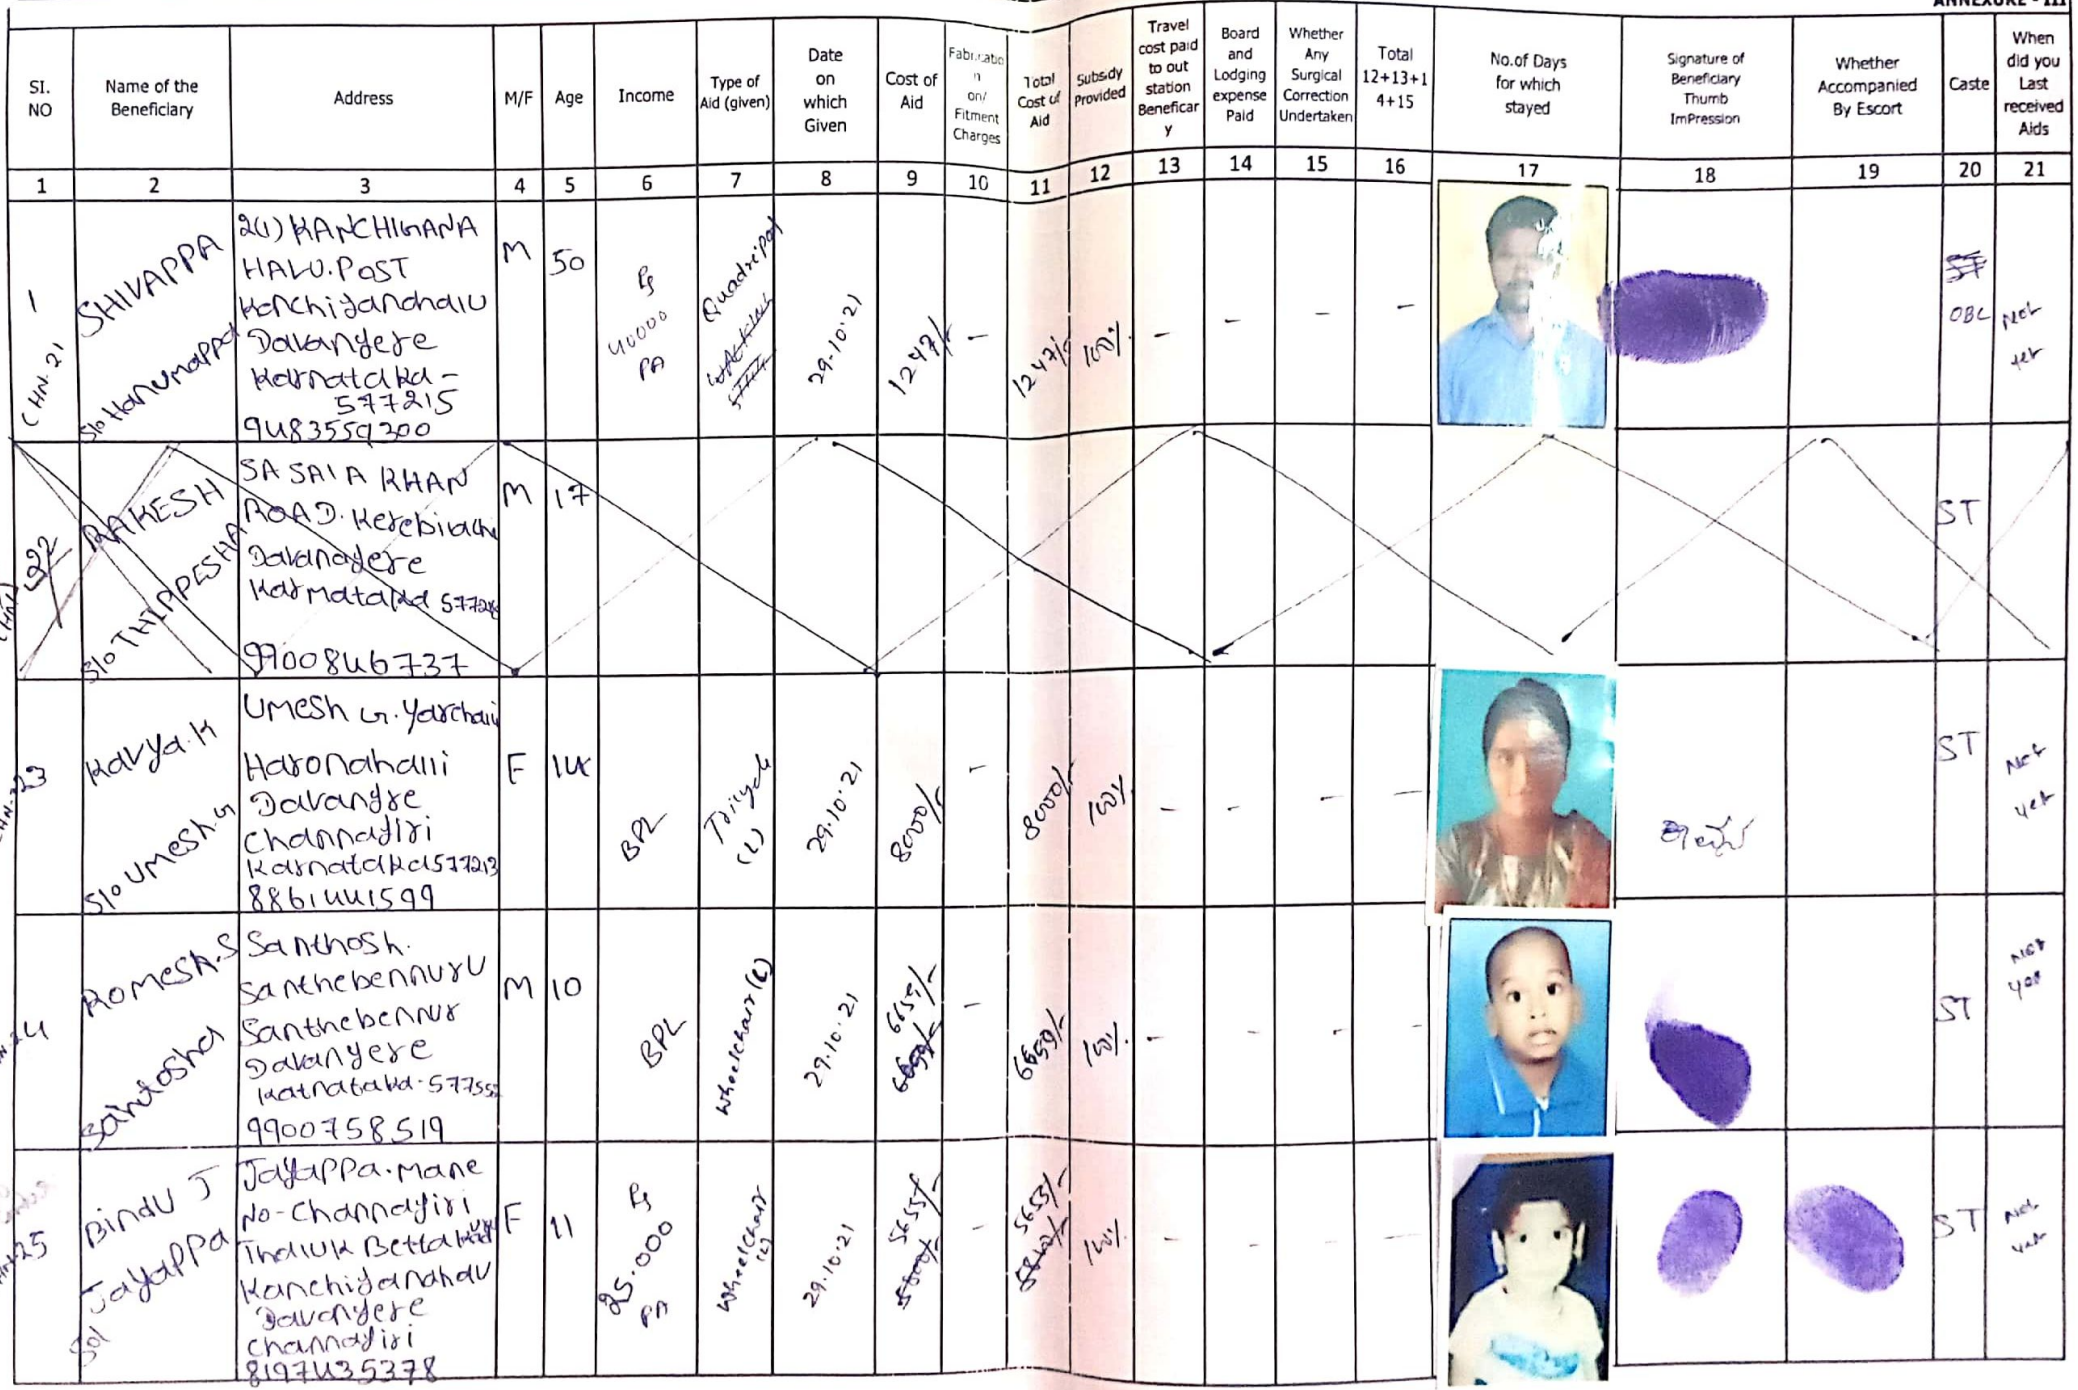 ANNEXURE - III
SI. NO
Name of the Beneficiary
Address
M/F
Age
Income
Type of Aid (given)
Date on which Given
Cost of Aid
Fabrication on/ Fitment Charges
Total Cost of Aid
Subsidy Provided
Travel cost paid to out station Beneficary
Board and Lodging expense Paid
Whether Any Surgical Correction Undertaken
Total 12+13+14+15
No.of Days for which stayed
Signature of Beneficiary Thumb ImPression
Whether Accompanied By Escort
Caste
When did you Last received Aids
1 2 3 4 5 6 7 8 9 10 11 12 13 14 15 16 17 18 19 20 21
1
CHN-21
SHIVAPPA
S/o Hanumappa
2(1) KANCHIGANA
HALU.POST
Kanchiganahalu
Davangere
Karnataka -
577215
9483559300
M
50
Rs
40000
PA
Quadripod
29.10.21
1247/-
-
1247/-
100%
-
-
-
-
OBC
Not
yet
22
RAKESH
S/o THIPPESHA
SA SAIA KHAN
ROAD. Kerebilachi
Davanagere
Karnataka
9900846737
M
17
ST
23
Kavya.K
S/o Umesh.G
Umesh G.
Haronahalli
Davangre
Channagiri
Karnataka 577213
8861441599
F
14
BPL
Tricycle
(L)
29.10.21
8000/-
-
8000/-
100%
-
-
-
-
ST
Not
yet
24
Romesh.S
Santosha
Santhosh.
Santhebennuru
Santhebennur
Davangere
Katnataka-
9900758519
M
10
BPL
Wheelchair (C)
29.10.21
6659/-
-
6659/-
100%
-
-
-
-
ST
Not
yet
25
Bindu J
Jayappa
Jayappa.Mane
No-Channagiri
Kanchiganahalu
Davangere
Channagiri
8197435378
F
11
Rs
25.000
PA
Wheelchair
(C)
29.10.21
-
5653/-
100%
-
-
-
-
ST
Not
yet